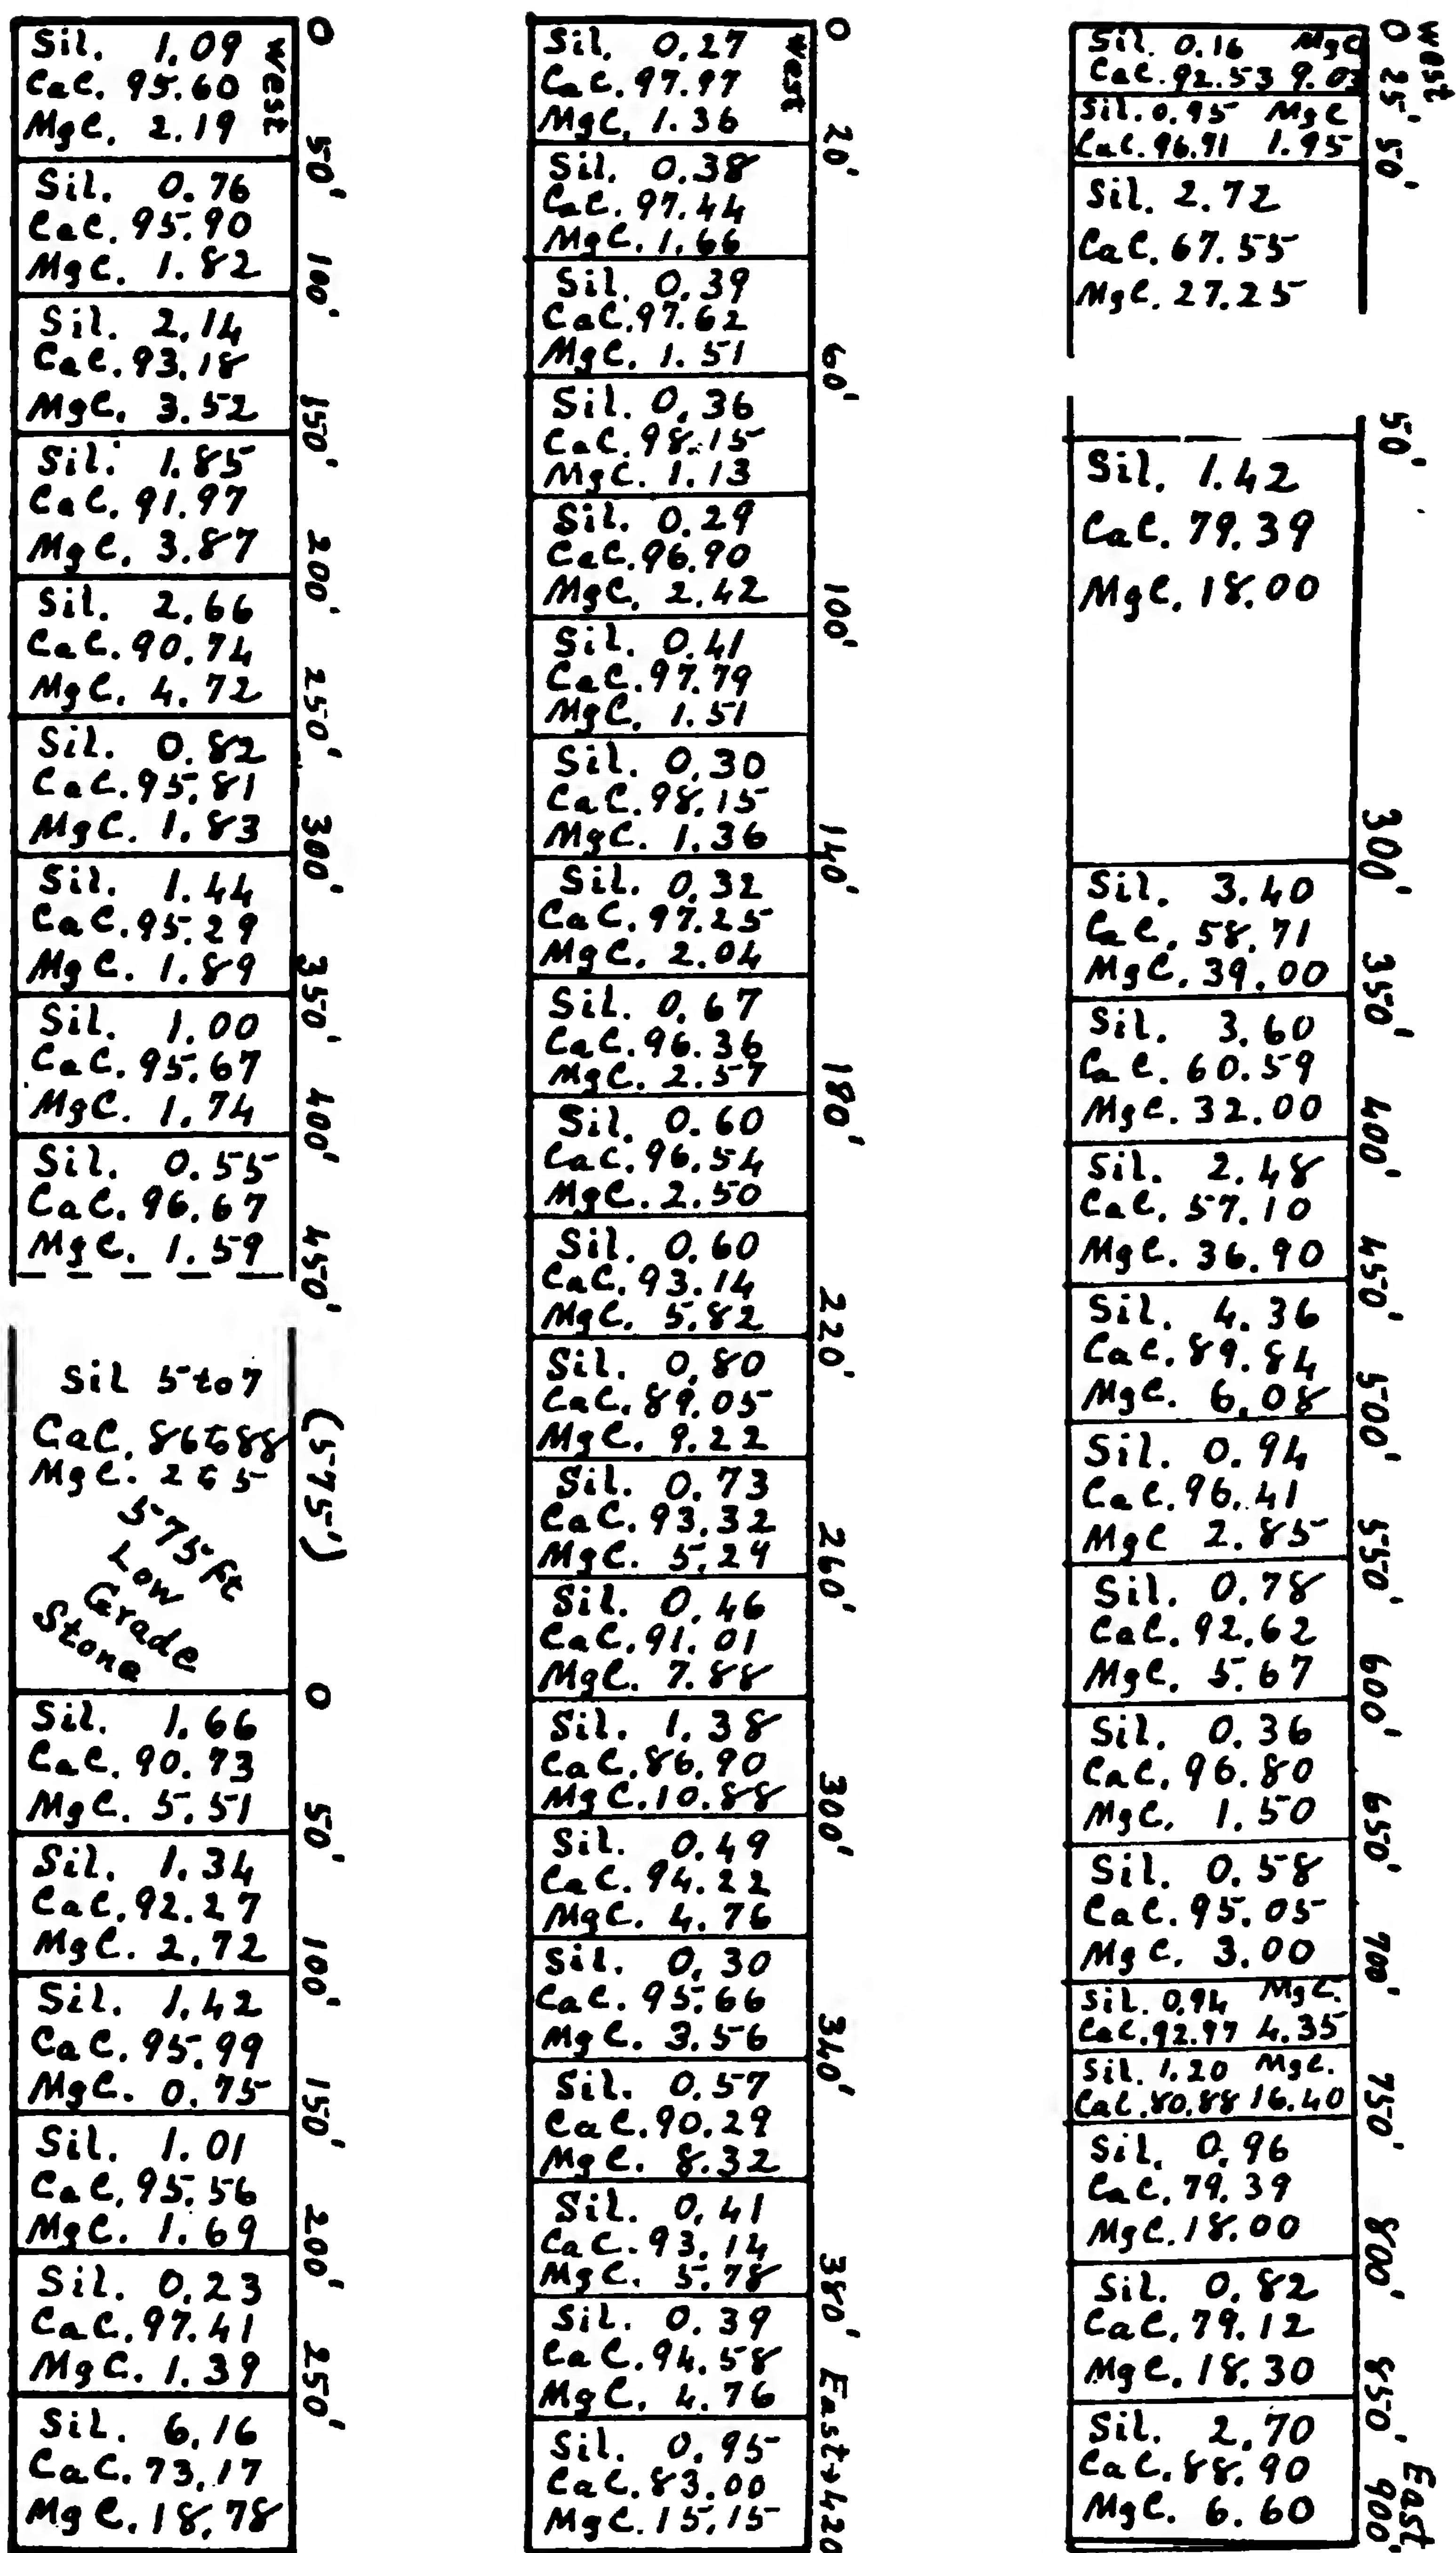 west
0
Sil. 1.09
CaC. 95.60
MgC. 2.19
50'
Sil. 0.76
CaC. 95.90
MgC. 1.82
100'
Sil. 2.14
CaC. 93.18
MgC. 3.52
150'
Sil. 1.85
CaC. 91.97
MgC. 3.87
200'
Sil. 2.66
CaC. 90.74
MgC. 4.72
250'
Sil. 0.82
CaC. 95.81
MgC. 1.83
300'
Sil. 1.44
CaC. 95.29
MgC. 1.89
350'
Sil. 1.00
CaC. 95.67
MgC. 1.74
400'
Sil. 0.55
CaC. 96.67
MgC. 1.59
450'
Sil 5 to 7
CaC. 86 to 88
MgC. 2 to 5
575 ft
Low
Grade
Stone
(575')
0
Sil. 1.66
CaC. 90.73
MgC. 5.51
50'
Sil. 1.34
CaC. 92.27
MgC. 2.72
100'
Sil. 1.42
CaC. 95.99
MgC. 0.75
150'
Sil. 1.01
CaC. 95.56
MgC. 1.69
200'
Sil. 0.23
CaC. 97.41
MgC. 1.39
250'
Sil. 6.16
CaC. 73.17
MgC. 18.78
west
0
Sil. 0.27
CaC. 97.97
MgC. 1.36
20'
Sil. 0.38
CaC. 97.44
MgC. 1.66
Sil. 0.39
CaC. 97.62
MgC. 1.51
60'
Sil. 0.36
CaC. 98.15
MgC. 1.13
Sil. 0.29
CaC. 96.90
MgC. 2.42
100'
Sil. 0.41
CaC. 97.79
MgC. 1.51
Sil. 0.30
CaC. 98.15
MgC. 1.36
140'
Sil. 0.32
CaC. 97.25
MgC. 2.04
Sil. 0.67
CaC. 96.36
MgC. 2.57
180'
Sil. 0.60
CaC. 96.54
MgC. 2.50
Sil. 0.60
CaC. 93.14
MgC. 5.82
220'
Sil. 0.80
CaC. 89.05
MgC. 9.22
Sil. 0.73
CaC. 93.32
MgC. 5.24
260'
Sil. 0.46
CaC. 91.01
MgC. 7.88
Sil. 1.38
CaC. 86.90
MgC. 10.88
300'
Sil. 0.49
CaC. 94.22
MgC. 4.76
Sil. 0.30
CaC. 95.66
MgC. 3.56
340'
Sil. 0.57
CaC. 90.29
MgC. 8.32
Sil. 0.41
CaC. 93.14
MgC. 5.78
380'
Sil. 0.39
CaC. 94.58
MgC. 4.76
Sil. 0.95
CaC. 83.00
MgC. 15.15
East→420
west
0
Sil. 0.16 MgC
CaC. 92.53 9.03
25'
Sil. 0.95 MgC
CaC. 96.91 1.95
50'
Sil. 2.72
CaC. 67.55
MgC. 27.25
50'
Sil. 1.42
CaC. 79.39
MgC. 18.00
300'
Sil. 3.40
CaC. 58.71
MgC. 39.00
350'
Sil. 3.60
CaC. 60.59
MgC. 32.00
400'
Sil. 2.48
CaC. 57.10
MgC. 36.90
450'
Sil. 4.36
CaC. 89.84
MgC. 6.08
500'
Sil. 0.94
CaC. 96.41
MgC 2.85
550'
Sil. 0.78
CaC. 92.62
MgC. 5.67
600'
Sil. 0.36
CaC. 96.80
MgC. 1.50
650'
Sil. 0.58
CaC. 95.05
MgC. 3.00
700'
Sil. 0.94 MgC.
CaC. 92.97 4.35
Sil. 1.20 MgC.
CaC. 80.88 16.40
750'
Sil. 0.96
CaC. 79.39
MgC. 18.00
800'
Sil. 0.82
CaC. 79.12
MgC. 18.30
850'
Sil. 2.70
CaC. 88.90
MgC. 6.60
East
900'